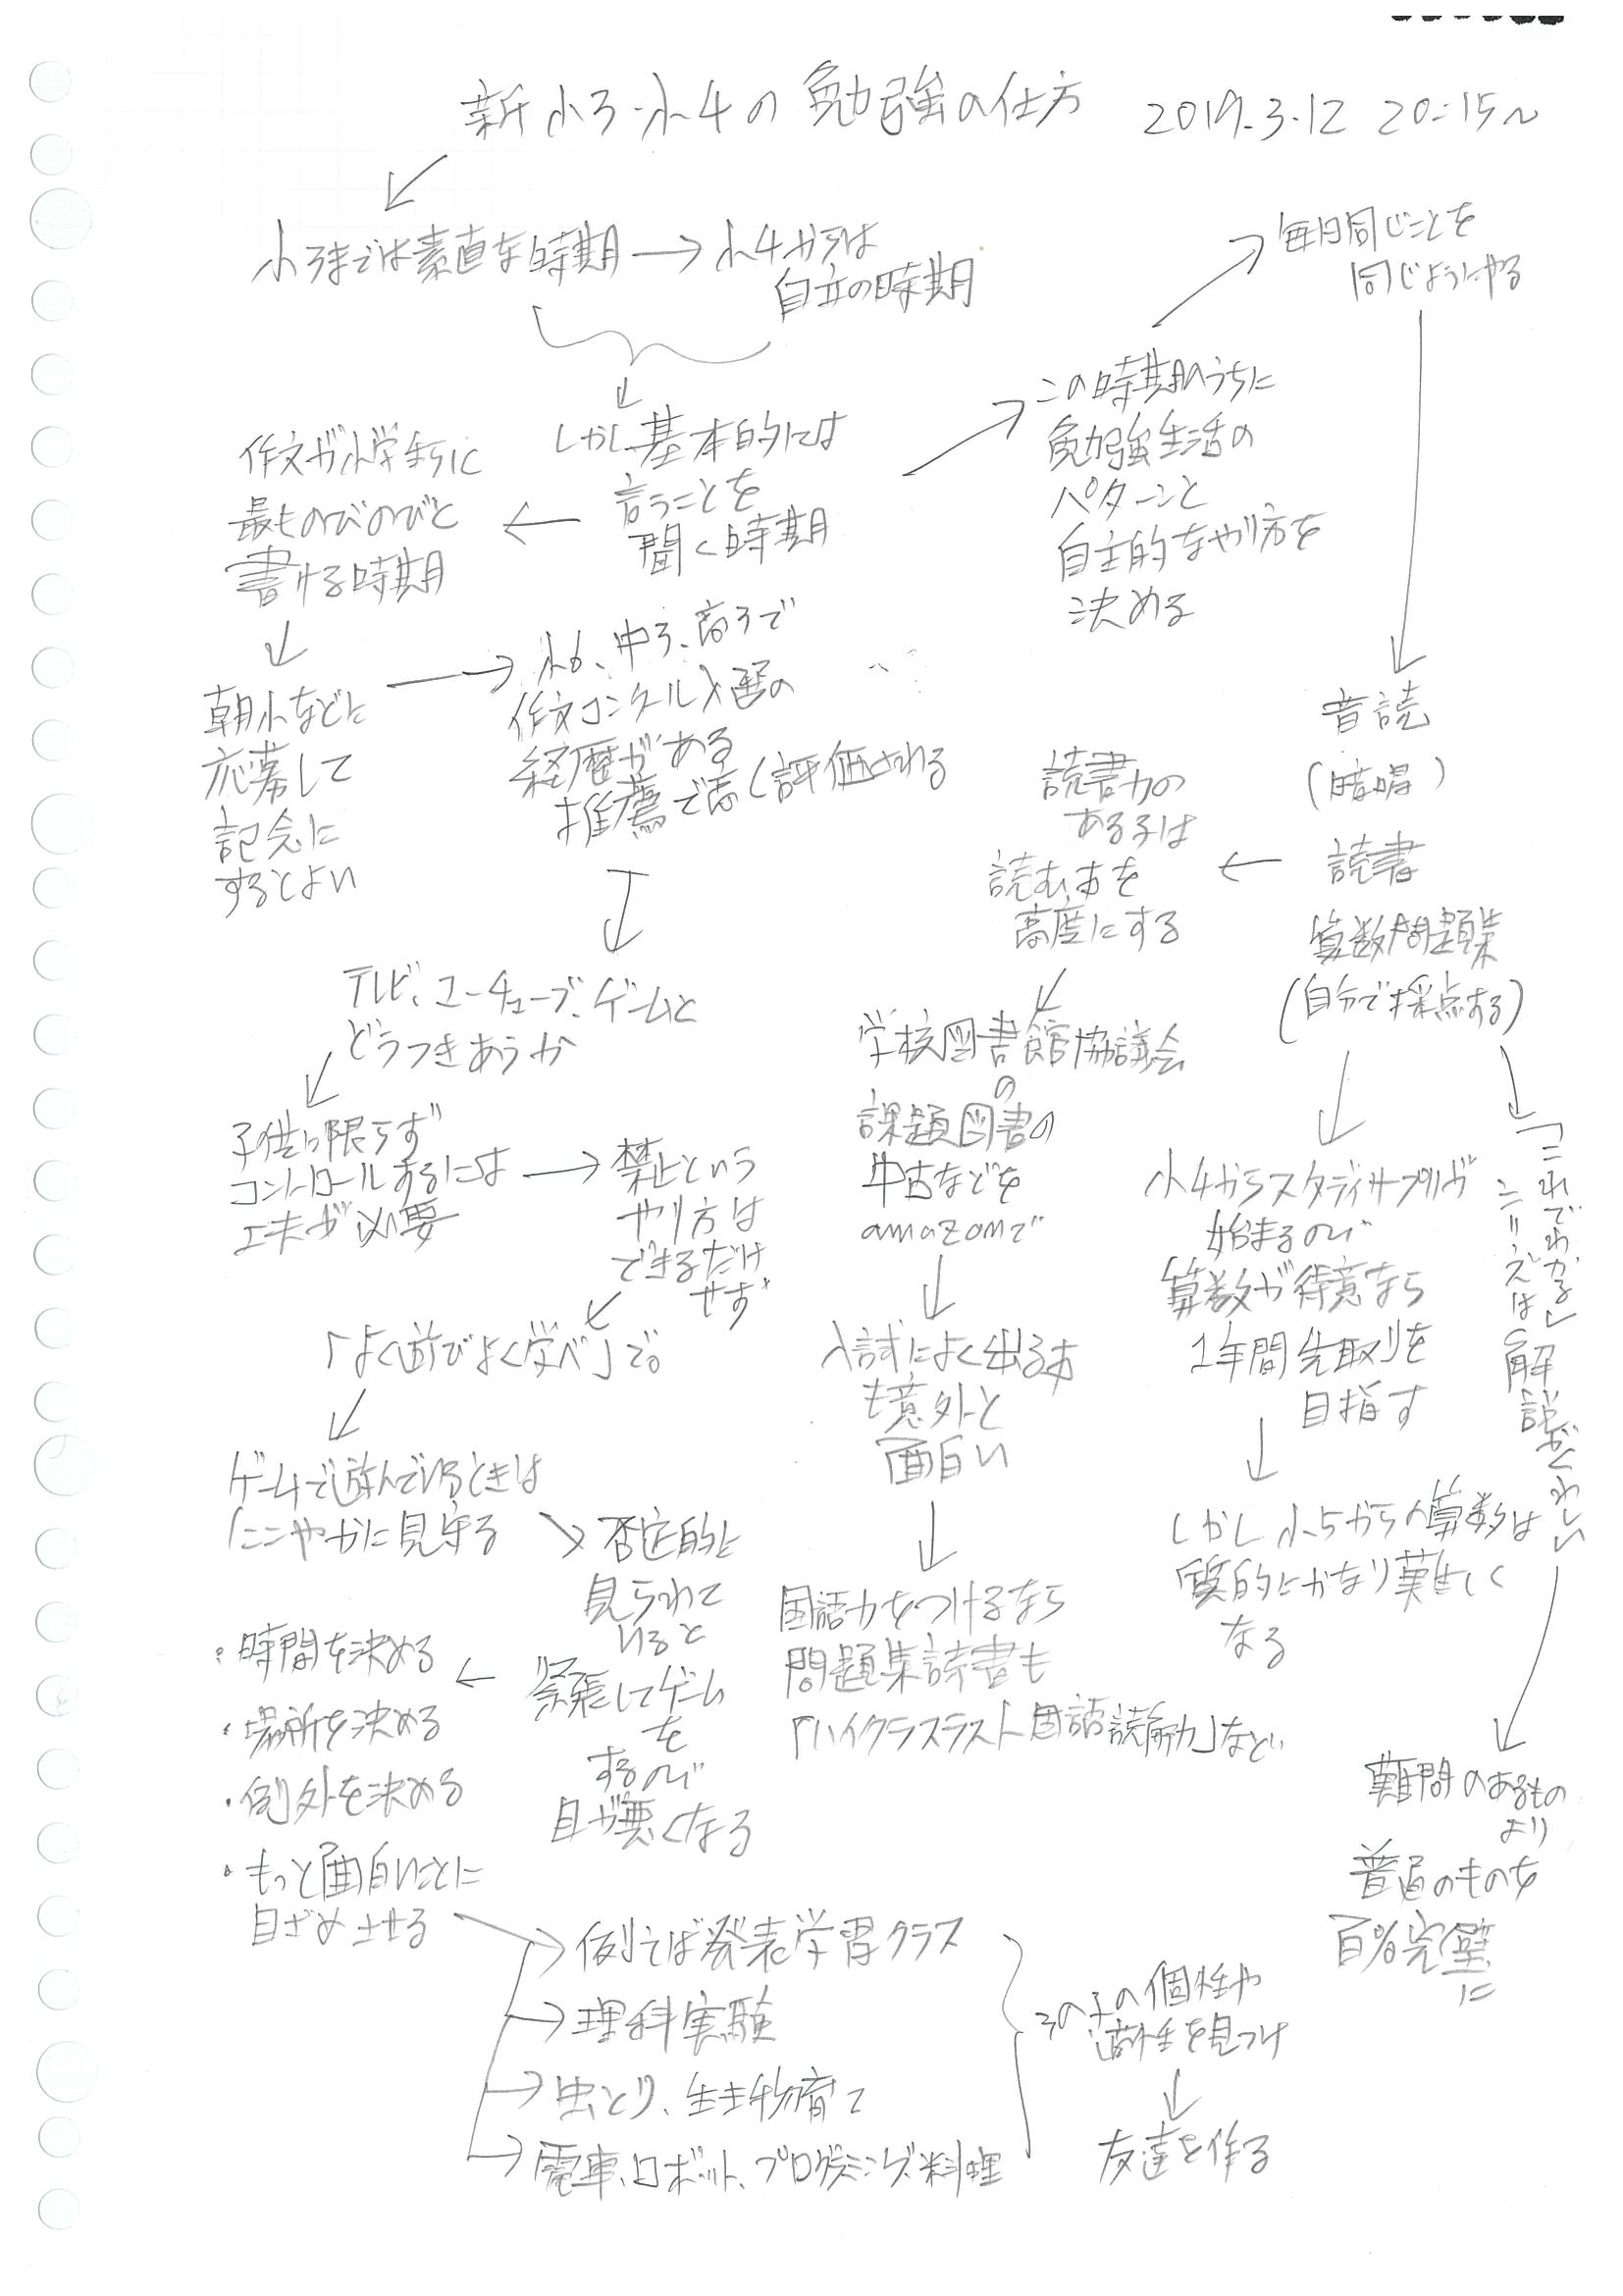 新小3・小4の勉強の仕方 2019.3.12 20:15〜
小3までは素直な時期
小4からは
自立の時期
しかし基本的には
言うことを
聞く時期
作文が小学生らに
最ものびのびと
書ける時期
朝小などに
応募して
記念に
するとよい
小6、中3、高3で
作文コンクール入選の
経歴がある
推薦で高く評価される
テレビ、ユーチューブ、ゲームと
どうつきあうか
子供に限らず
コントロールするには
工夫が必要
禁止という
やり方は
できるだけ
せず
「よく遊びよく学べ」で。
ゲームで遊んでいるときは
にこやかに見守る
否定的に
見られて
いると
緊張してゲーム
を
するので
目が悪くなる
・時間を決める
・場所を決める
・例外を決める
・もっと面白いことに
目ざめさせる
例えば発表学習クラス
理科実験
虫とり、生き物育て
電車、ロボット、プログラミング、料理
その子の個性や
適性を見つけ
友達を作る
この時期のうちに
勉強生活の
パターンと
自主的なやり方を
決める
毎日同じことを
同じようにやる
音読
(暗唱)
読書
算数問題集
(自分で採点する)
読書力の
ある子は
読む本を
高度にする
学校図書館協議会
の
課題図書の
中古などを
amazonで
入試によく出る本
も意外と
面白い
国語力をつけるなら
問題集読書も
「ハイクラステスト国語読解力」など
小4からスタディサプリが
始まるので
算数が得意なら
1年間先取りを
目指す
しかし小5からの算数は
質的にかなり難しく
なる
「これでわかる」
シリーズは解説がくわしい
難問のあるもの
より
普通のものを
百%完璧
に